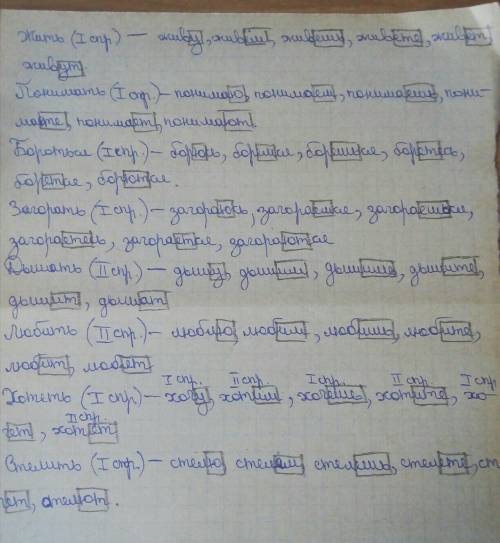 Жить (I спр) — живу, живём, живёшь, живёте, живёт,
живут.
Понимать (I спр.) — понимаю, понимаем, понимаешь, пони-
маете, понимает, понимают.
Бороться (I спр.) — борюсь, боремся, борешься, боретесь,
борется, борются.
Загорать (I спр.) — загораюсь, загораемся, загораешься,
загораетесь, загорается, загораются
Дышать (II спр.) — дышу, дышим, дышишь, дышите,
дышит, дышат
Любить (II спр.) — люблю, любим, любишь, любите,
любит, любят
I спр. II спр. I спр. II спр. I спр
Хотеть (I спр) — хочу, хотим, хочешь, хотите, хо-
II спр.
чет, хотят
Стелить (I спр.) — стелю стелем стелешь, стелете, ст
ет, стелют.